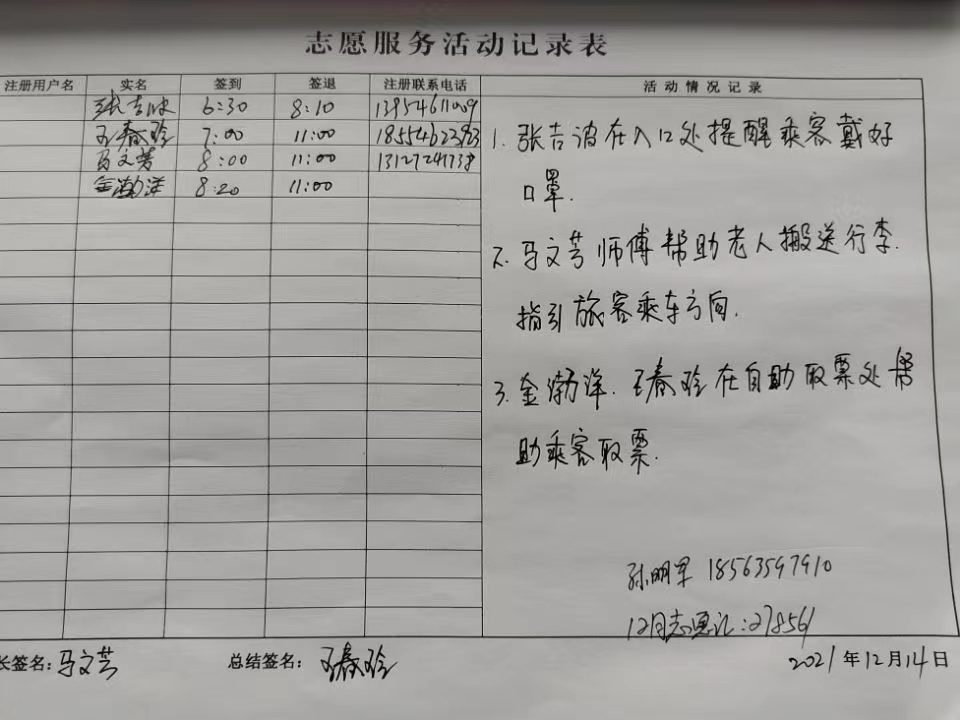 志愿服务活动记录表
注册用户名 实名 签到 签退 注册联系电话 活动情况记录
张吉波 6:30 8:10
王春玲 7:00 11:00
马文芳 8:00 11:00
金渤洋 8:20 11:00
1. 张吉波在入口处提醒乘客戴好
口罩.
2. 马文芳师傅帮助老人搬送行李.
指引旅客乘车方向.
3. 金渤洋.王春玲在自助取票处帮
助乘客取票.
18563597910
12月志愿汇:27856
长签名:马文芳 总结签名:王春玲 2021年12月14日